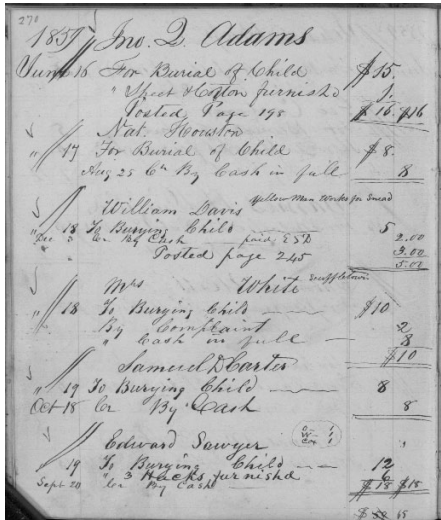 270
1857 Jno. Q. Adams
June 16 For Burial of Child $15.
" Sheet & Cotton furnished 1.
Posted, Page 198 $16 $16
Nat. Houston
" 17 For Burial of Child $8.
Aug 25 Cr By Cash in full 8
William Davis Yellow Man Works for Snead
" 18 To Burying Child 5
Dec 3 Cr By Cash paid ESD 2.00
" Posted page 245 3.00
5.00
Mrs White
" 18 To Burying Child $10
By Complaint 2
" Cash in full 8
$10
Samuel D Carter
" 19 To Burying Child 8
Oct 18 Cr By Cash 8
Edward Sawyer
" 19 To Burying Child 12
" 3 Hacks furnished 6
Sept 20 Cr By Cash $18 $18